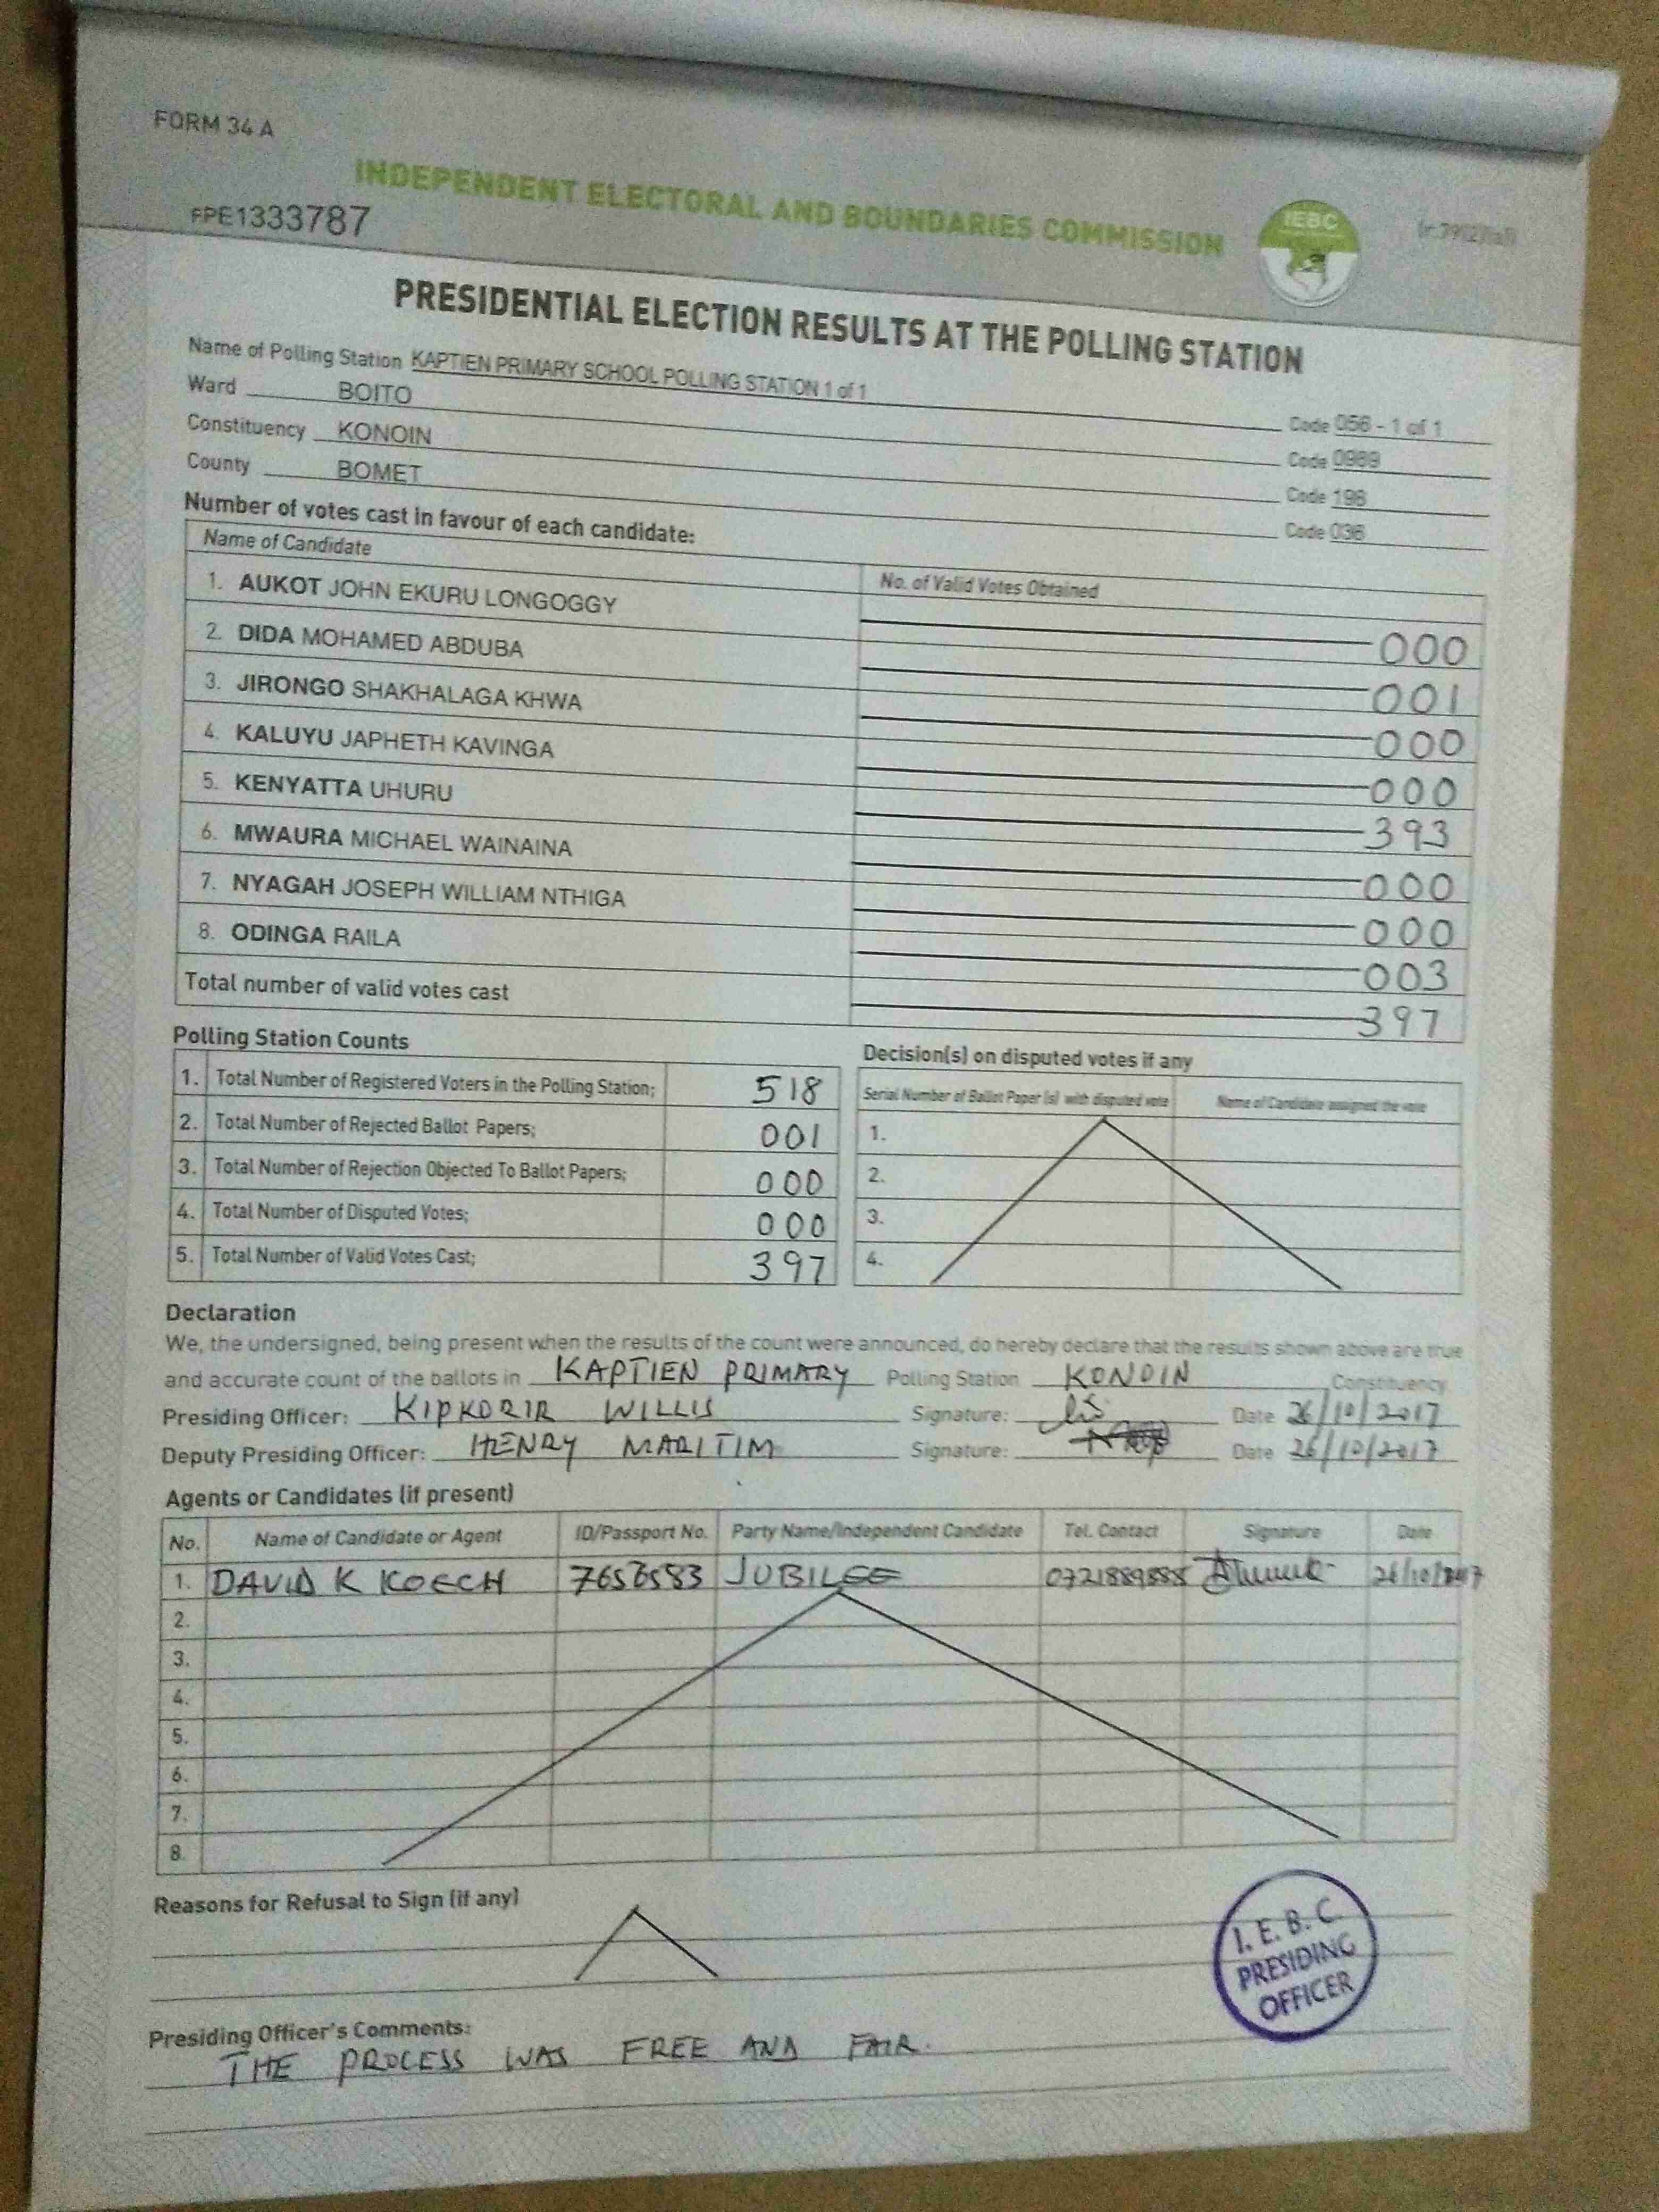 FORM 34 A
INDEPENDENT ELECTORAL AND BOUNDARIES COMMISSION
IEBC
FPE1333787
PRESIDENTIAL ELECTION RESULTS AT THE POLLING STATION
Name of Polling Station KAPTIEN PRIMARY SCHOOL POLLING STATION 1 of 1 Code 056 - 1 of 1
Ward BOITO Code 0989
Constituency KONOIN Code 196
County BOMET Code 036
Number of votes cast in favour of each candidate:
Name of Candidate No. of Valid Votes Obtained
1. AUKOT JOHN EKURU LONGOGGY 000
2. DIDA MOHAMED ABDUBA 001
3. JIRONGO SHAKHALAGA KHWA 000
4. KALUYU JAPHETH KAVINGA 000
5. KENYATTA UHURU 393
6. MWAURA MICHAEL WAINAINA 000
7. NYAGAH JOSEPH WILLIAM NTHIGA 000
8. ODINGA RAILA 003
Total number of valid votes cast 397
Polling Station Counts
1. Total Number of Registered Voters in the Polling Station; 518
2. Total Number of Rejected Ballot Papers; 001
3. Total Number of Rejection Objected To Ballot Papers; 000
4. Total Number of Disputed Votes; 000
5. Total Number of Valid Votes Cast; 397
Decision(s) on disputed votes if any
Serial Number of Ballot Paper (s) with disputed vote Name of Candidate assigned the vote
1.
2.
3.
4.
Declaration
We, the undersigned, being present when the results of the count were announced, do hereby declare that the results shown above are true
and accurate count of the ballots in KAPTIEN PRIMARY Polling Station KONOIN Constituency
Presiding Officer: KIPKORIR WILLIS Signature: Date 26/10/2017
Deputy Presiding Officer: HENRY MARITIM Signature: Date 26/10/2017
Agents or Candidates (if present)
No. Name of Candidate or Agent ID/Passport No. Party Name/Independent Candidate Tel. Contact Signature Date
1. DAVID K KOECH JUBILEE 26/10/2017
2.
3.
4.
5.
6.
7.
8.
Reasons for Refusal to Sign (if any)
I. E. B. C.
PRESIDING
OFFICER
Presiding Officer's Comments:
THE PROCESS WAS FREE AND FAIR.